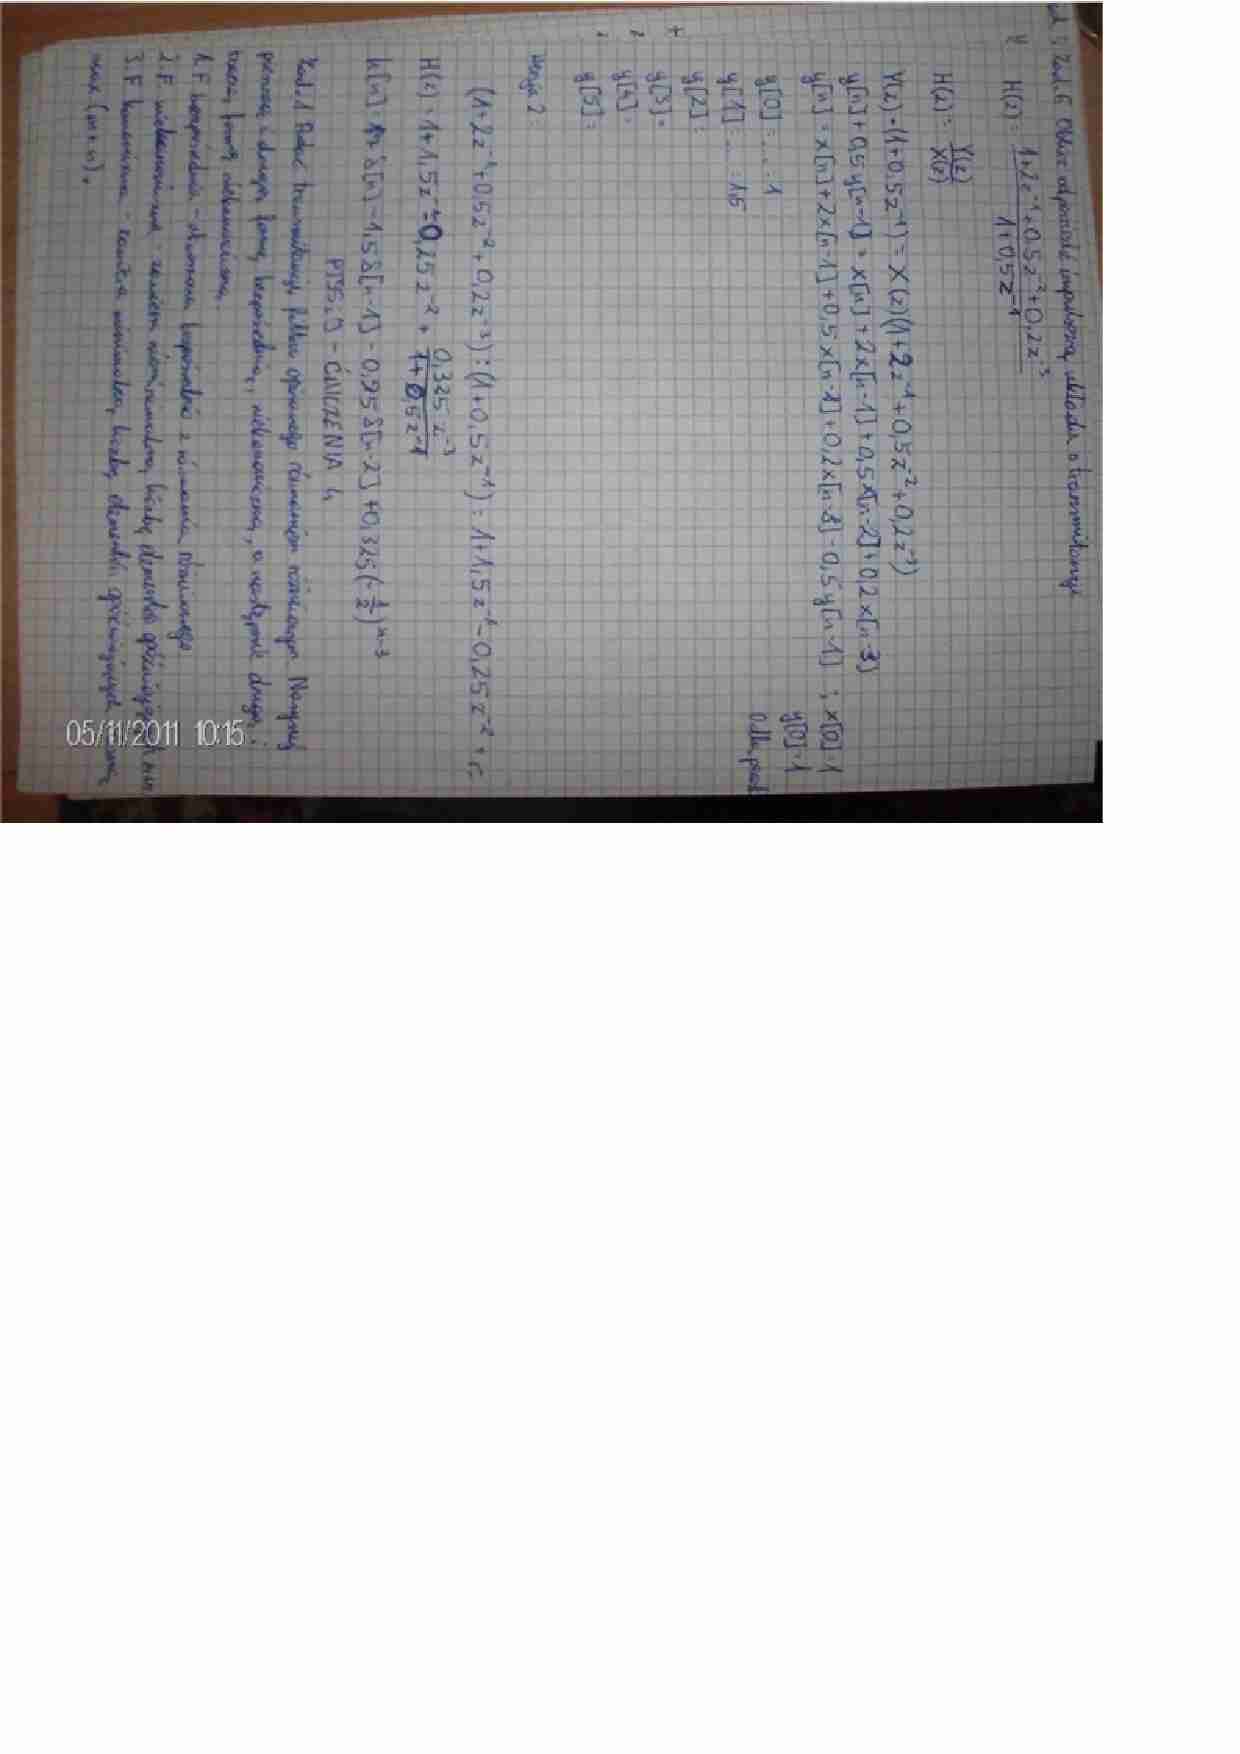 Zad. 6 Oblicz odpowiedź impulsową układu o transmitancji
H(z) = 1+2z⁻¹+0,5z⁻²+0,2z⁻³ / 1+0,5z⁻¹
H(z) = Y(z) / X(z)
Y(z)·(1+0,5z⁻¹) = X(z)(1+2z⁻¹+0,5z⁻²+0,2z⁻³)
y[n]+0,5y[n-1] = x[n]+2x[n-1]+0,5x[n-2]+0,2x[n-3)
y[n] = x[n]+2x[n-1]+0,5x[n-1]+0,2x[n-3]-0,5y[n-1] ; x[0]=1
y[0]=1
y[0] = .... 1
y[1] = .... = 1,5
y[2] =
y[3] =
y[4] =
y[5] =
(1+2z⁻¹+0,5z⁻²+0,2z⁻³):(1+0,5z⁻¹) = 1+1,5z⁻¹-0,25z⁻² + r
H(z) = 1+1,5z⁻¹-0,25z⁻² + 0,325z⁻³ / 1+0,5z⁻¹
h[n] = δ[n]-1,5δ[n-1]-0,25δ[n-2]+0,325(-1/2)ⁿ⁻³
- ĆWICZENIA 4
Zad. 1 Podać transmitancję filtru opisanego równaniem różnicowym. Narysuj
pierwszą i drugą formę bezpośrednią, niekanoniczną, a następnie drugą
formę niekanoniczną.
1. F bezpośrednia - otrzymana bezpośrednio z równania różnicowego
2. F niekanoniczna - zawiera nieminimalną liczbę elementów opóźniających
3. F kanoniczna - zawiera minimalną liczbę elementów opóźniających równą
max (m, n).
05/11/2011 10:15